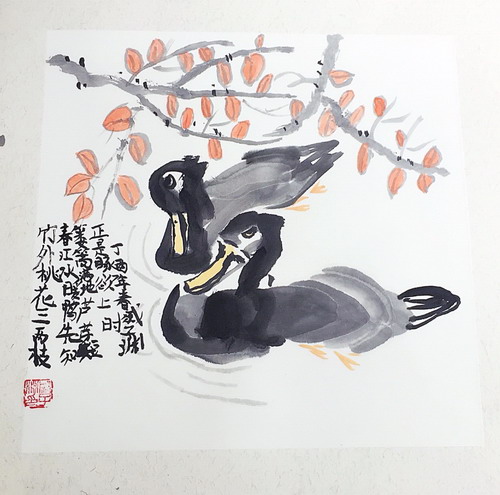 竹外桃花三两枝
春江水暖鸭先知
蒌蒿满地芦芽短
正是豚欲上时
丁酉年春